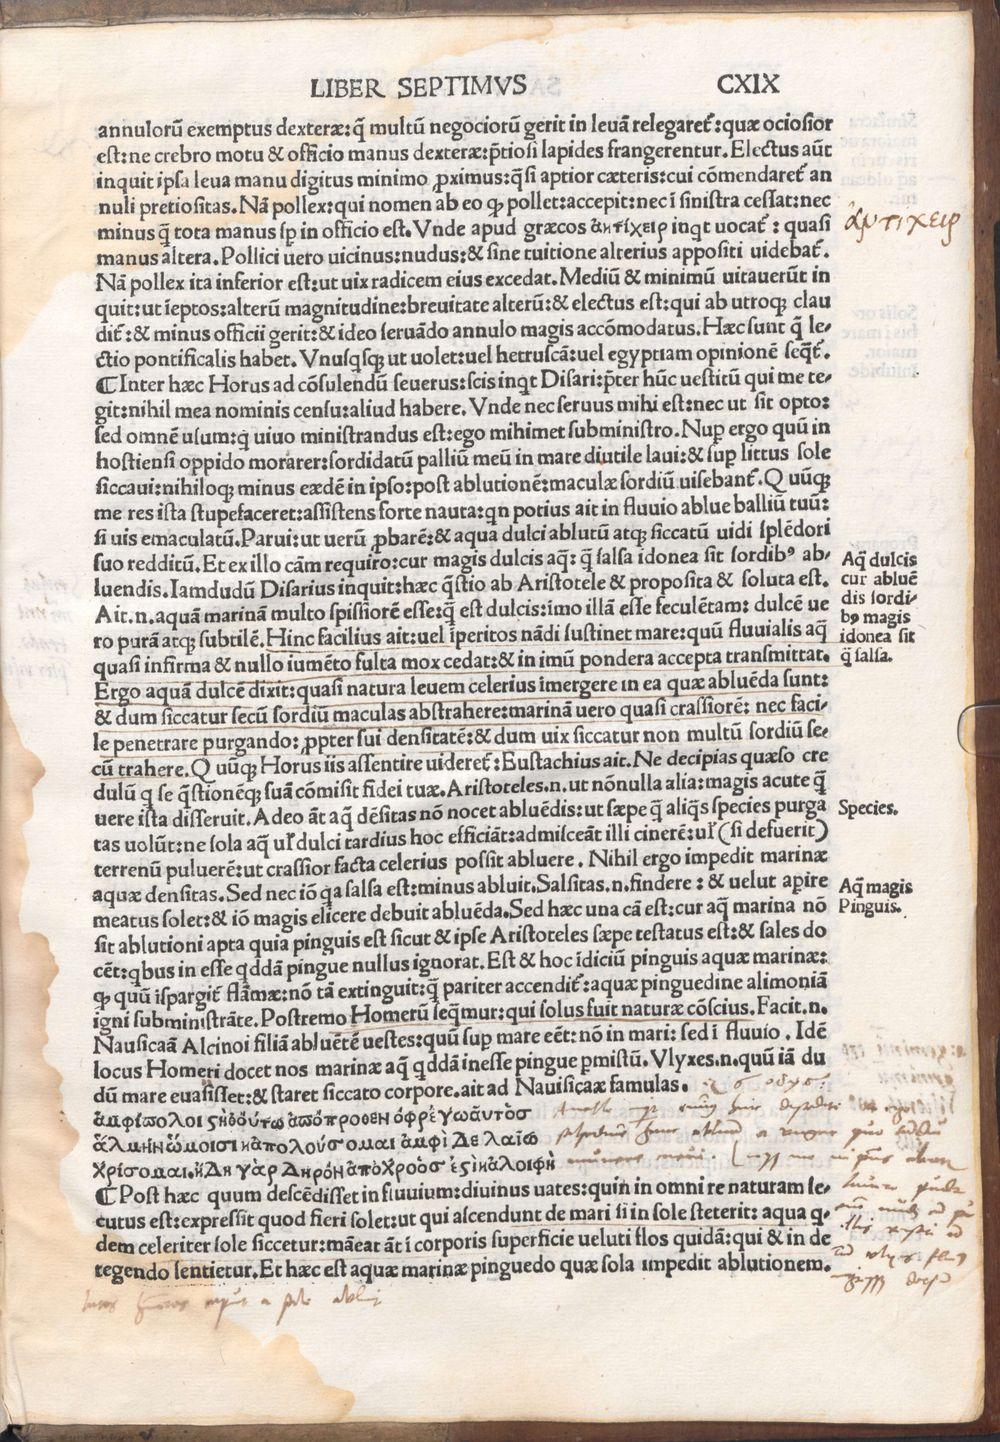 LIBER SEPTIMVS CXIX
annulorū exemptus dexteræ:q̄ multū negociorū gerit in leuā relegaret᷒:quæ ociosior
est:ne crebro motu & officio manus dexteræ:p̄tiosi lapides frangerentur. Electus aūt
inquit ipsa leua manu digitus minimo ꝓximus:q̄si aptior cæteris:cui cōmendaret᷒ an
nuli pretiositas. Nā pollex:qui nomen ab eo ꝙ pollet:accepit:nec ī sinistra cessat:nec
minus q̄ tota manus sꝑ in officio est. Vnde apud græcos ἀντίχειρ inqt uocat᷒: quasi
manus altera. Pollici uero uicinus:nudus:& sine tuitione alterius appositi uidebat᷒.
Nā pollex ita inferior est:ut uix radicem eius excedat. Mediū & minimū uitauerūt in
quit:ut īeptos:alterū magnitudine:breuitate alterū:& electus est:qui ab utroqꝫ clau
dit᷒:& minus officii gerit:& ideo seruādo annulo magis accōmodatus. Hæc sunt q̄ le-
ctio pontificalis habet. Vnusqsqꝫ ut uolet:uel hetruscā:uel egyptiam opinionē seq̄t᷒.
¶ Inter hæc Horus ad cōsulendū seuerus:scis inqt Disari:p̄ter hūc uestitū qui me te-
git:nihil mea nominis censu:aliud habere. Vnde nec seruus mihi est:nec ut sit opto:
sed omnē usum:q uiuo ministrandus est:ego mihimet subministro. Nuꝑ ergo quū in
hostiensi oppido morarer:sordidatū palliū meū in mare diutile laui:& suꝑ littus sole
siccaui:nihiloqꝫ minus eædē in ipso:post ablutionē:maculæ sordiū uisebant᷒. Q uūqꝫ
me res ista stupefaceret:assistens forte nauta:qn potius ait in fluuio ablue balliū tuū:
si uis emaculatū. Parui:ut uerū ꝓbarē:& aqua dulci ablutū atqꝫ siccatū uidi splēdori
suo redditū. Et ex illo cām requiro:cur magis dulcis aq̄: q̄ salsa idonea sit sordibꝰ ab-
luendis. Iamdudū Disarius inquit:hæc q̄stio ab Aristotele & proposita & soluta est.
Ait.n.aquā marinā multo spissiorē esse:q̄ est dulcis:imo illā esse feculētam: dulcē ue
ro purā atqꝫ subtilē. Hinc facilius ait:uel īperitos nādi sustinet mare:quū fluuialis aq̄
quasi infirma & nullo iumēto fulta mox cedat:& in imū pondera accepta transmittat.
Ergo aquā dulcē dixit:quasi natura leuem celerius īmergere in ea quæ abluēda sunt:
& dum siccatur secū sordiū maculas abstrahere:marinā uero quasi crassiorē: nec faci-
le penetrare purgando: ꝓpter sui densitatē:& dum uix siccatur non multū sordiū se-
cū trahere. Q uūqꝫ Horus iis assentire uideret᷒: Eustachius ait. Ne decipias quæso cre
dulū q se q̄stionēqꝫ suā cōmisit fidei tuæ. Aristoteles.n.ut nōnulla alia:magis acute q̄
uere ista disseruit. Adeo āt aq̄ dēsitas nō nocet abluēdis:ut sæpe q̄ aliqs species purga
tas uolūt:ne sola aq̄ uľ dulci tardius hoc efficiāt:admisceāt illi cinerē:uľ (si defuerit)
terrenū puluerē:ut crassior facta celerius possit abluere. Nihil ergo impedit marinæ
aquæ densitas. Sed nec iō q̄a salsa est:minus abluit. Salsitas.n.findere: & uelut aꝑire
meatus solet:& iō magis elicere debuit abluēda. Sed hæc una cā est:cur aq̄ marina nō
sit ablutioni apta quia pinguis est sicut & ipse Aristoteles sæpe testatus est:& sales do
cēt:qbus in esse qddā pingue nullus ignorat. Est & hoc īdiciū pinguis aquæ marinæ:
ꝙ quū īspargit᷒ flāmæ:nō tā extinguit:q̄ pariter accendit᷒:aquæ pinguedine alimoniā
igni subministrāte. Postremo Homerū seq̄mur:qui solus fuit naturæ cōscius. Facit.n.
Nausicaā Alcinoi filiā abluētē uestes:quū suꝑ mare eēt:nō in mari: sed ī fluuio. Idē
locus Homeri docet nos marinæ aq̄ qddā inesse pingue ꝑmistū. Vlyxes.n.quū iā du
dū mare euasisset:& staret siccato corpore.ait ad Nausicaæ famulas.
ἀμφίπολοι ϛῆθ᾽οὕτω ἀπόπροθεν ὄφρ᾽ἐγὼ αὐτὸς
ἅλμην ὤμοιϊν ἀπολούσομαι ἀμφὶ δὲ λαίω
χρίσομαι.ἦ δὴ γὰρ δηρὸν ἀπὸ χροός ἐϛὶν ἀλοιφὴ
¶ Post hæc quum descēdisset in fluuium:diuinus uates:quin in omni re naturam se-
cutus est:expressit quod fieri solet:ut qui ascendunt de mari si in sole steterit: aqua q-
dem celeriter sole siccetur:māeat āt ī corporis superficie ueluti flos quidā:qui & in de
tegendo sentietur. Et hæc est aquæ marinæ pinguedo quæ sola impedit ablutionem.
ἀντίχειρ
Aq̄ dulcis
cur abluē
dis sordi-
bꝰ magis
idonea sit
q̄ salsa.
Species.
Aq̄ magis
Pinguis.